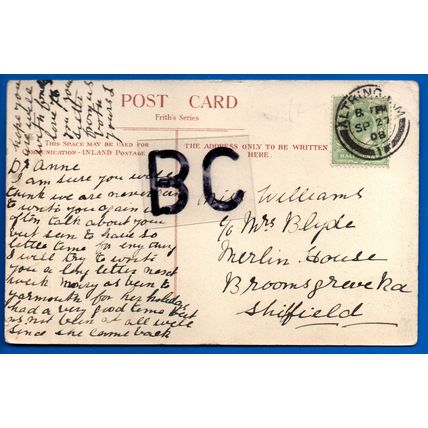 POST CARD
Frith's Series
THIS SPACE MAY BE USED FOR
COMMUNICATION - INLAND POSTAGE
THE ADDRESS ONLY TO BE WRITTEN
HERE.
BC
ALTRINCHAM
8. PM
SP 21
08
HALFPENNY
Dr Anne
I am sure you will
think we are never
to write you again
often talk about you
but seem to have so
little time for any
I will try to write
you a long letter next
week as been to
Yarmouth for her holidays
had a very good time but
as not been at all well
since she come back
hope you
with fond
love to
you
yours
Miss Williams
c/o Mrs Blyde
Merlin House
Broomsgrove Rd
Sheffield